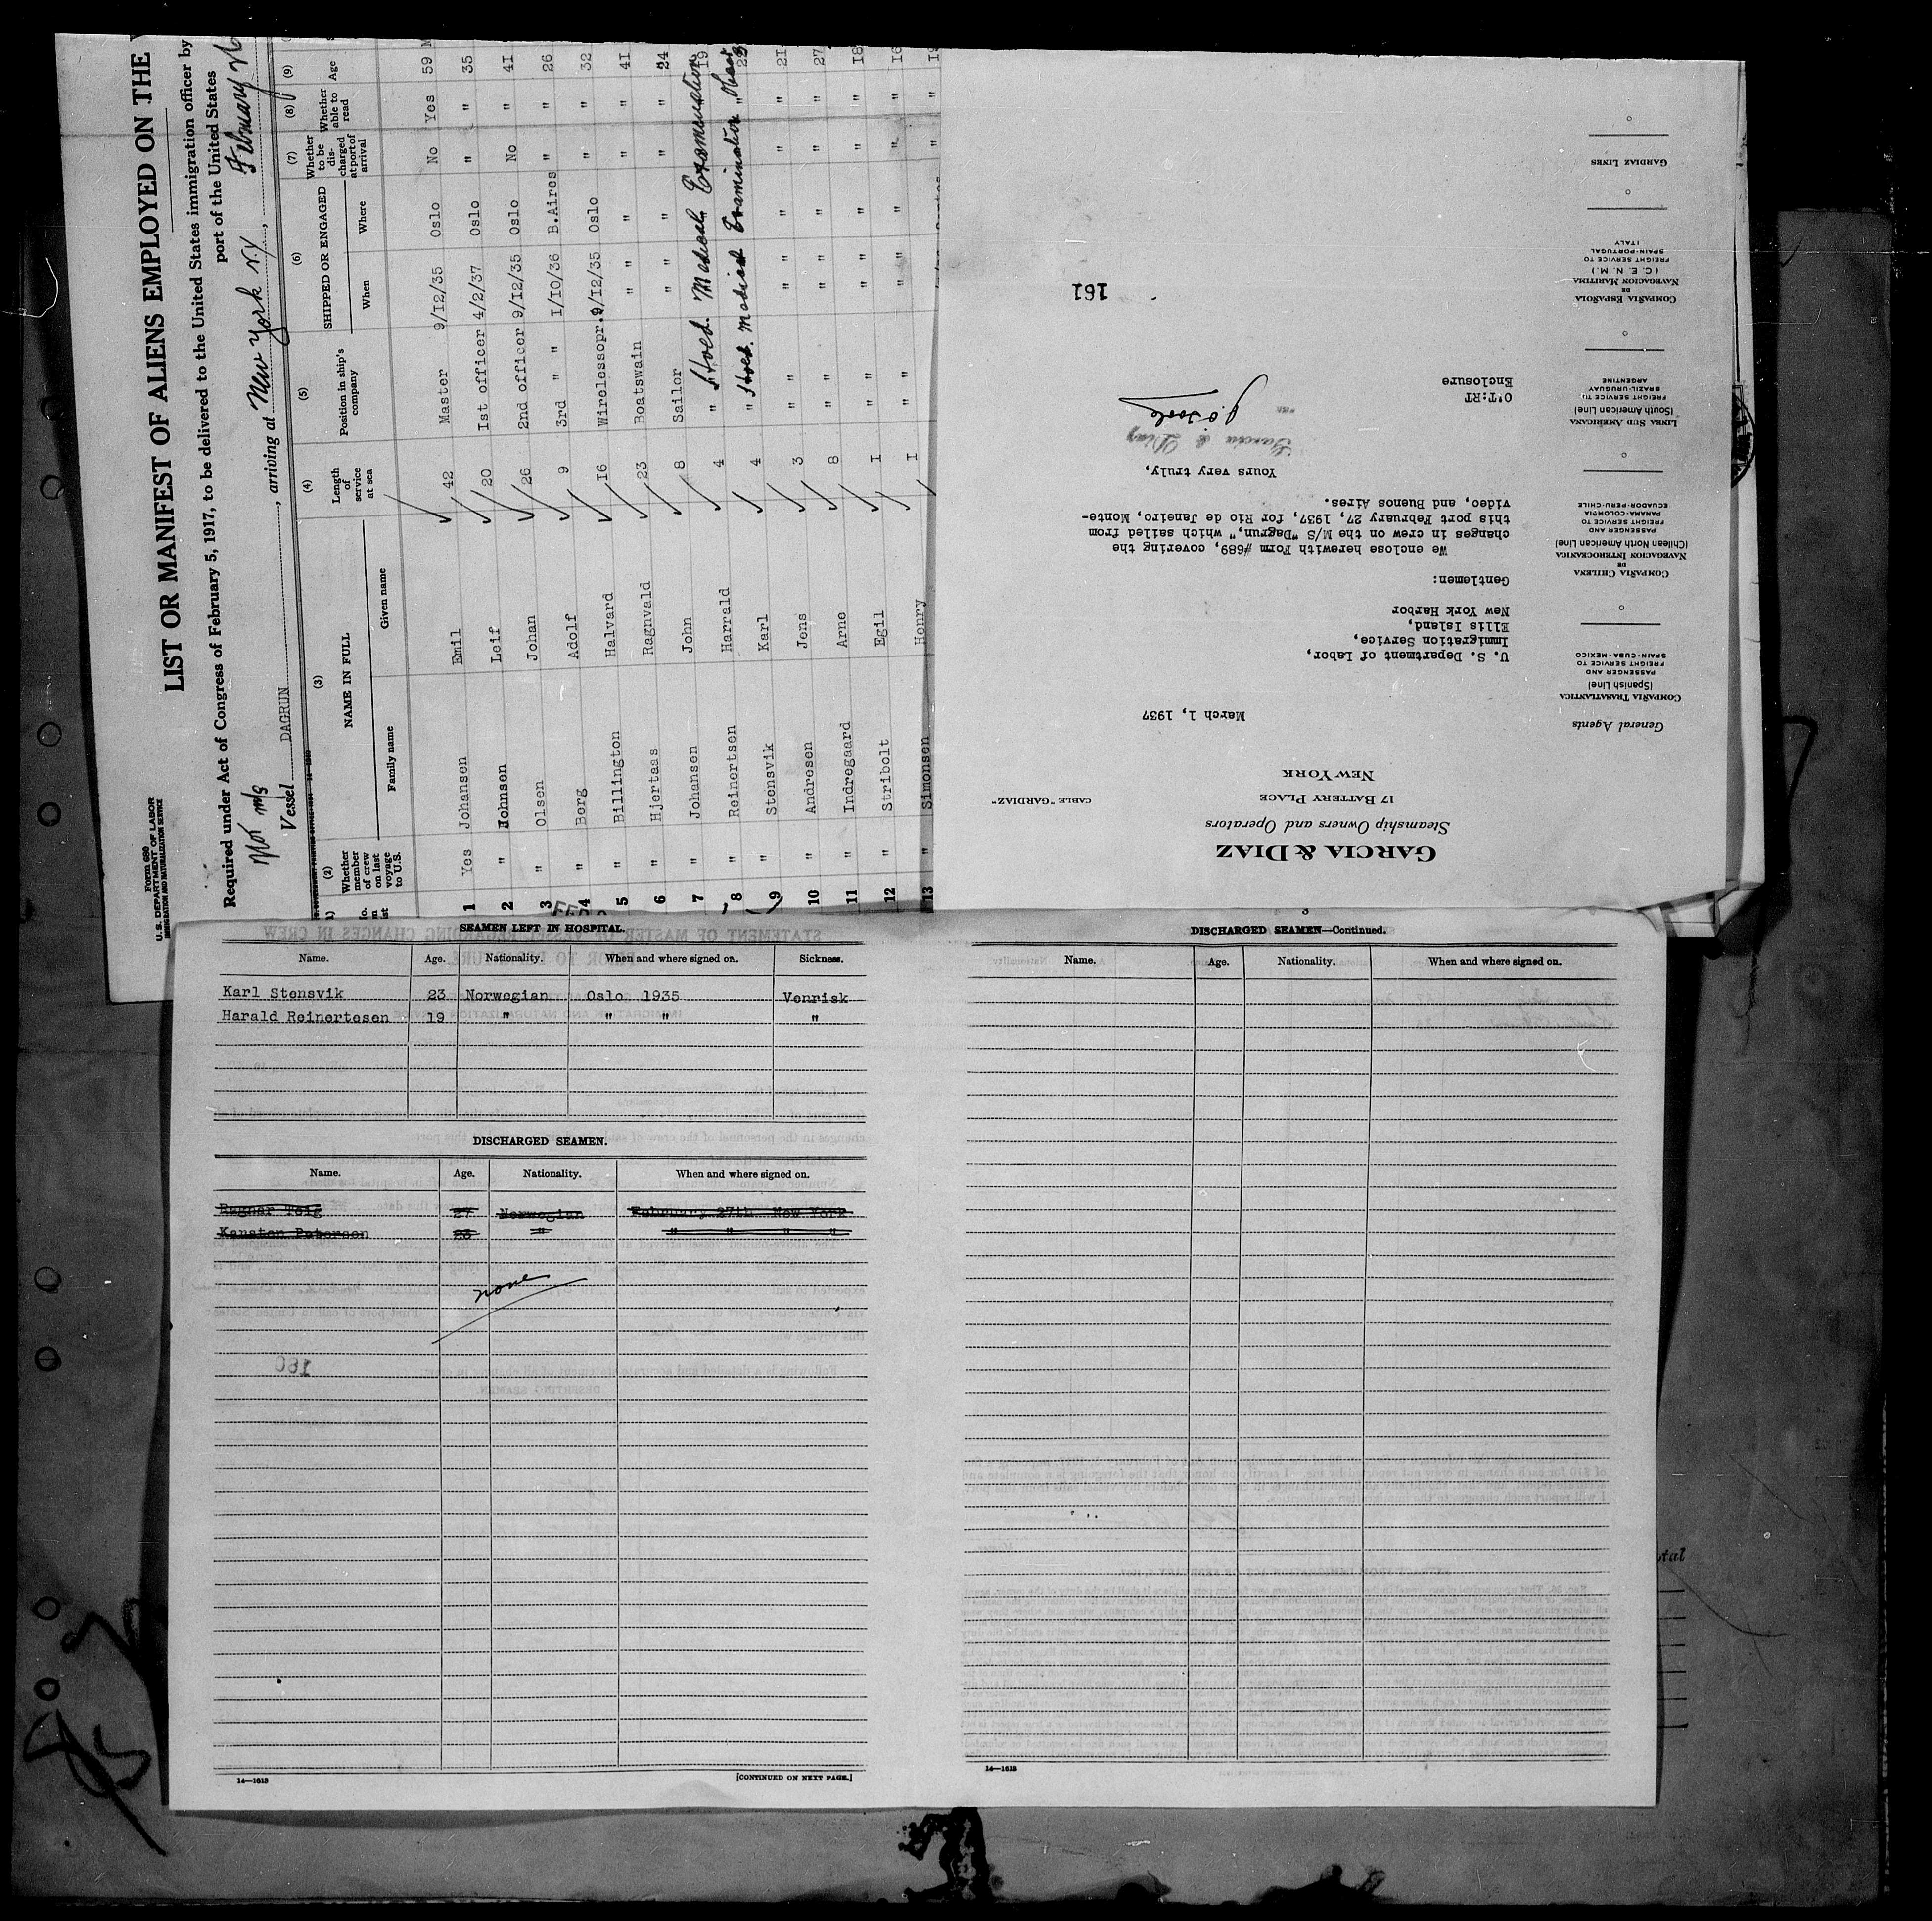 Form 680
U. S. DEPARTMENT OF LABOR
IMMIGRATION AND NATURALIZATION SERVICE
LIST OR MANIFEST OF ALIENS EMPLOYED ON THE
Required under Act of Congress of February 5, 1917, to be delivered to the United States immigration officer by
port of the United States
Nor m/s
Vessel DAGRUN, arriving at New York N.Y., February 26
(2) (3) (4) (5) (6) (7) (8) (9)
Whether member of crew on last voyage to U.S. NAME IN FULL Family name Given name Length of service at sea Position in ship's company SHIPPED OR ENGAGED When Where Whether to be discharged at port of arrival Whether able to read Age
1 Yes Johansen Emil 42 Master 9/12/35 Oslo No Yes 59
2 " Johnsen Leif 20 1st officer 4/2/37 Oslo " " 35
3 " Olsen Johan 26 2nd officer 9/12/35 Oslo No " 41
4 " Berg Adolf 9 3rd " 1/10/36 B.Aires " " 26
5 " Billington Halvard 16 Wirelessopr. 9/12/35 Oslo " " 32
6 " Hjertaas Ragnvald 23 Boatswain " " " " 41
7 " Johansen John 8 Sailor " " " " 24
8 " Reinertsen Harrald 4 " Hosp. Medical Examination 19
9 " Stensvik Karl 4 " Hosp. Medical Examination " 23
10 " Andresen Jens 3 " " " " " 21
11 " Indregaard Arne 8 " " " " " 27
12 " Stribolt Egil I " " " " " 18
13 " Simonsen Henry I " " " " " 16
GARCIA & DIAZ
Steamship Owners and Operators
17 BATTERY PLACE
NEW YORK
CABLE "GARDIAZ"
General Agents
COMPAÑIA TRASATLANTICA
(Spanish Line)
PASSENGER AND
FREIGHT SERVICE TO
SPAIN-CUBA-MEXICO
COMPAÑIA CHILENA
DE
NAVEGACION INTEROCEANICA
(Chilean North American Line)
PASSENGER AND
FREIGHT SERVICE TO
PANAMA-COLOMBIA
ECUADOR-PERU-CHILE
LINEA SUD AMERICANA
(South American Line)
FREIGHT SERVICE TO
BRAZIL-URUGUAY
ARGENTINE
COMPAÑIA ESPAÑOLA
DE
NAVEGACION MARITIMA
(C. E. N. M.)
FREIGHT SERVICE TO
SPAIN-PORTUGAL
ITALY
GARDIAZ LINES
March 1, 1937
U. S. Department of Labor,
Immigration Service,
Ellis Island,
New York Harbor
Gentlemen:
We enclose herewith Form #689, covering the
changes in crew on the M/S "Dagrun," which sailed from
this port February 27, 1937, for Rio de Janeiro, Monte-
video, and Buenos Aires.
Yours very truly,
Garcia & Diaz
O'T:RT
Enclosure
161
SEAMEN LEFT IN HOSPITAL.
Name. Age. Nationality. When and where signed on. Sickness.
Karl Stensvik 23 Norwegian Oslo 1935 Venrisk
Harald Reinertesen 19 " " " "
DISCHARGED SEAMEN.
Name. Age. Nationality. When and where signed on.
Ragnar Teig 27 Norwegian February 27th New York
Karsten Petersen 23 " " " " "
none
160
14—1613
[CONTINUED ON NEXT PAGE.]
DISCHARGED SEAMEN—Continued.
Name. Age. Nationality. When and where signed on.
14—1613